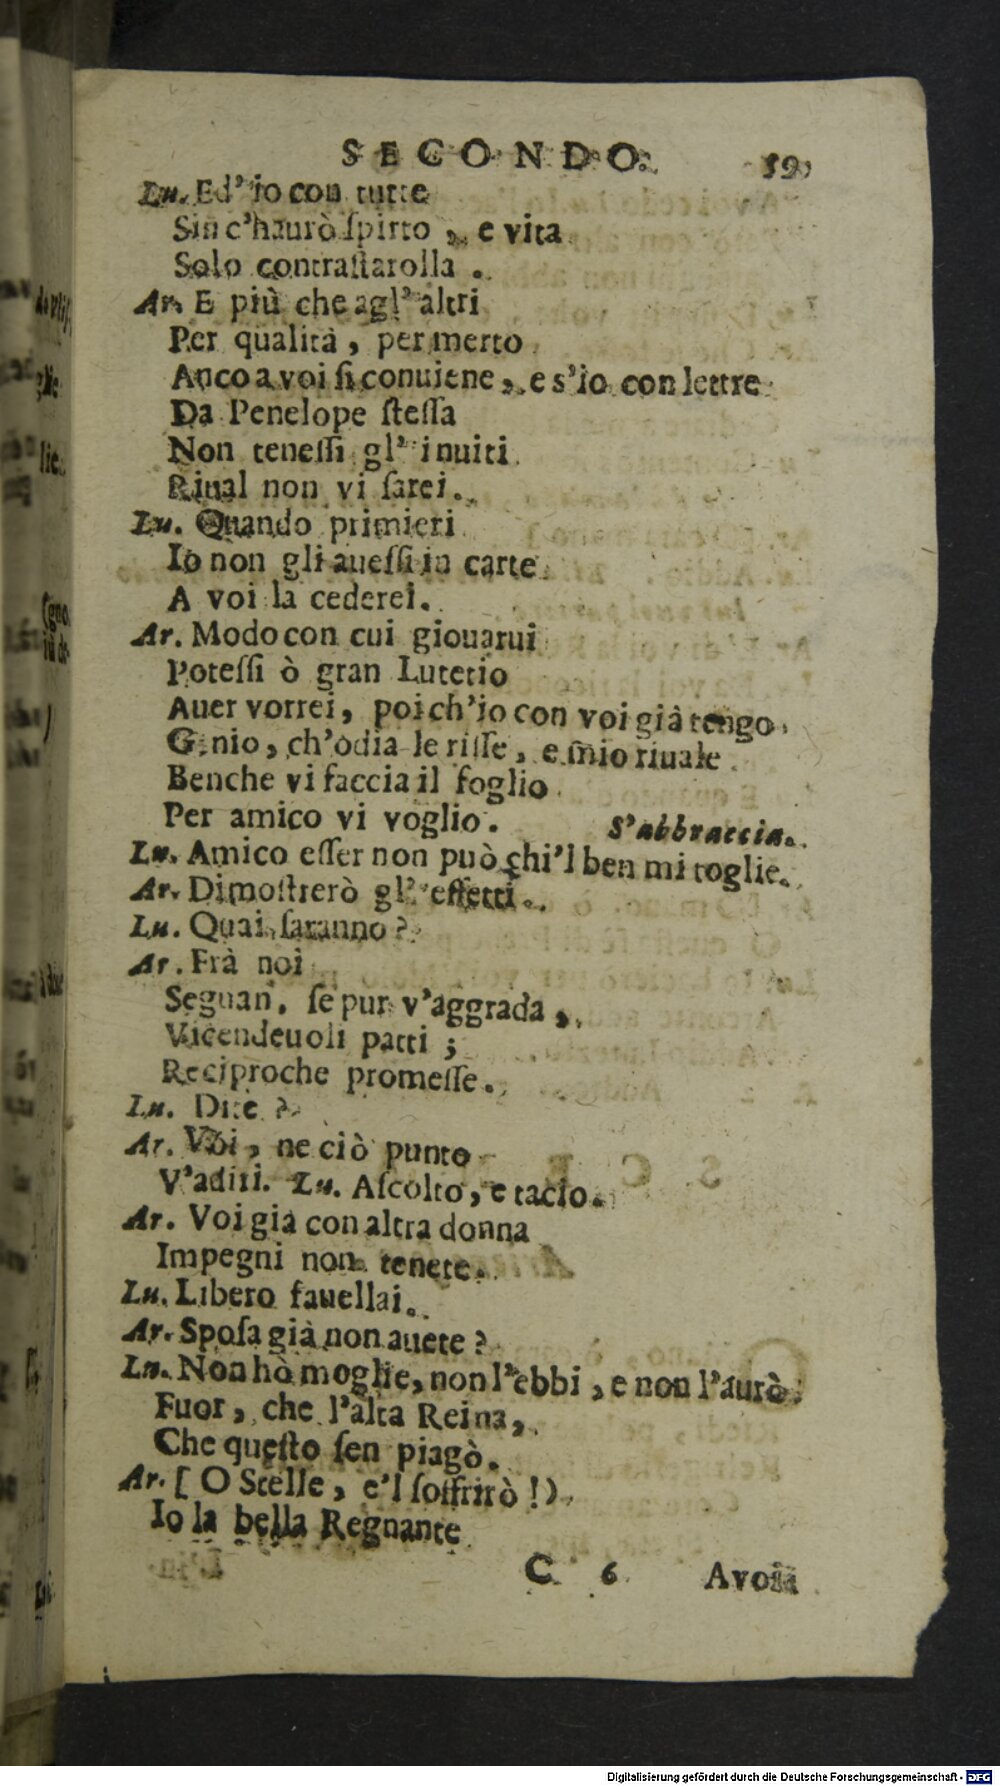 SECONDO. 59
Lu. Ed' io con tutte
Sin c'haurò ſpirto, e vita
Solo contraſtarolla.
Ar. E più che agl' altri
Per qualità, per merto
Anco a voi ſi conuiene, e s'io con lettre
Da Penelope ſteſſa
Non teneſſi gl' inuiti
Riual non vi ſarei.
Lu. Quando primieri
Io non gli aueſſi in carte
A voi la cederei.
Ar. Modo con cui giouarui
Poteſſi ò gran Lutetio
Auer vorrei, poi ch'io con voi già tengo
Genio, ch'odia le riſſe, e mio riuale
Benche vi faccia il foglio
Per amico vi voglio. S'abbraccia.
Lu. Amico eſſer non può chi'l ben mi toglie.
Ar. Dimoſtrerò gl' effetti.
Lu. Quai ſaranno?
Ar. Frà noi
Seguan, ſe pur v'aggrada,
Vicendeuoli patti;
Reciproche promeſſe.
Lu. Dite?
Ar. Voi, ne ciò punto
V'aditi. Lu. Aſcolto, e tacio.
Ar. Voi già con altra donna
Impegni non tenete.
Lu. Libero fauellai.
Ar. Spoſa già non auete?
Lu. Non hò moglie, non l'ebbi, e non l'aurò
Fuor, che l'alta Reina,
Che queſto ſen piagò.
Ar. [ O Stelle, e'l ſoffrirò!)
Io la bella Regnante
C 6 Avoi
Digitalisierung gefördert durch die Deutsche Forschungsgemeinschaft - DFG